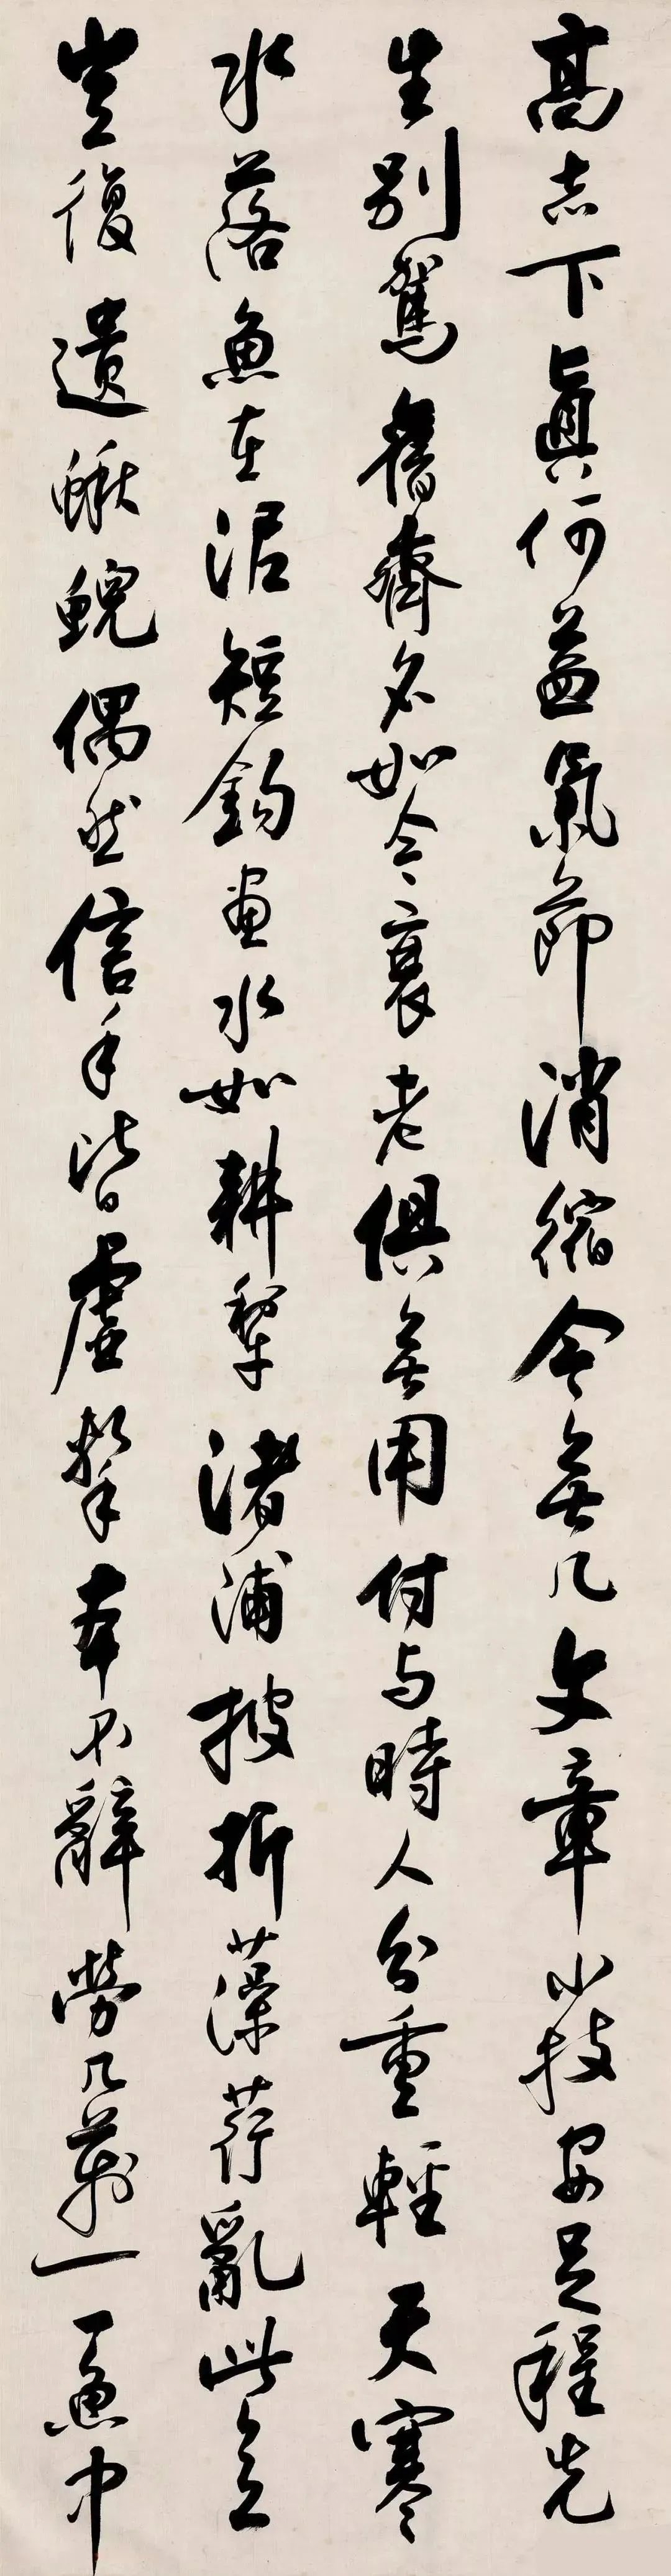 高志下眞何益氣節消縮今無几文章小技安足程先
生別駕舊齊名如今衰老俱無用付与時人分重輕天寒
水落魚在泥短鈎畫水如耕犂渚浦披折藻荇亂此意
豈復遺鰍鯢偶然信手皆虛擊本不辭勞几萬一一魚中